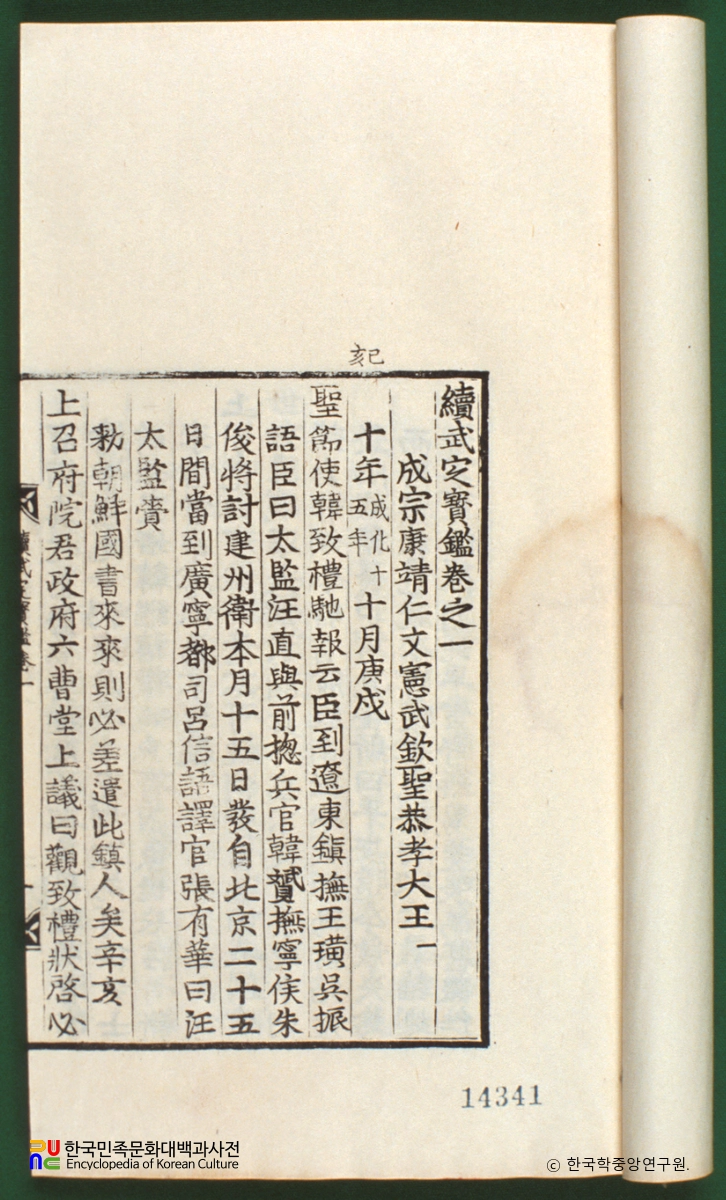 己亥
續武定寶鑑卷之一
成宗康靖仁文憲武欽聖恭孝大王一
十年成化十五年十月庚戌
聖節使韓致禮馳報云臣到遼東鎮撫王璜吳振
語臣曰太監汪直與前揔兵官韓贇撫寧侯朱
俊將討建州衛本月十五日發自北京二十五
日間當到廣寧都司呂信語譯官張有華曰汪
太監賫
勑朝鮮國書來來則必差遣此鎮人矣辛亥
上召府院君政府六曹堂上議曰觀致禮狀啓必
續武定寶鑑卷一
14341
한국민족문화대백과사전
Encyclopedia of Korean Culture
© 한국학중앙연구원.